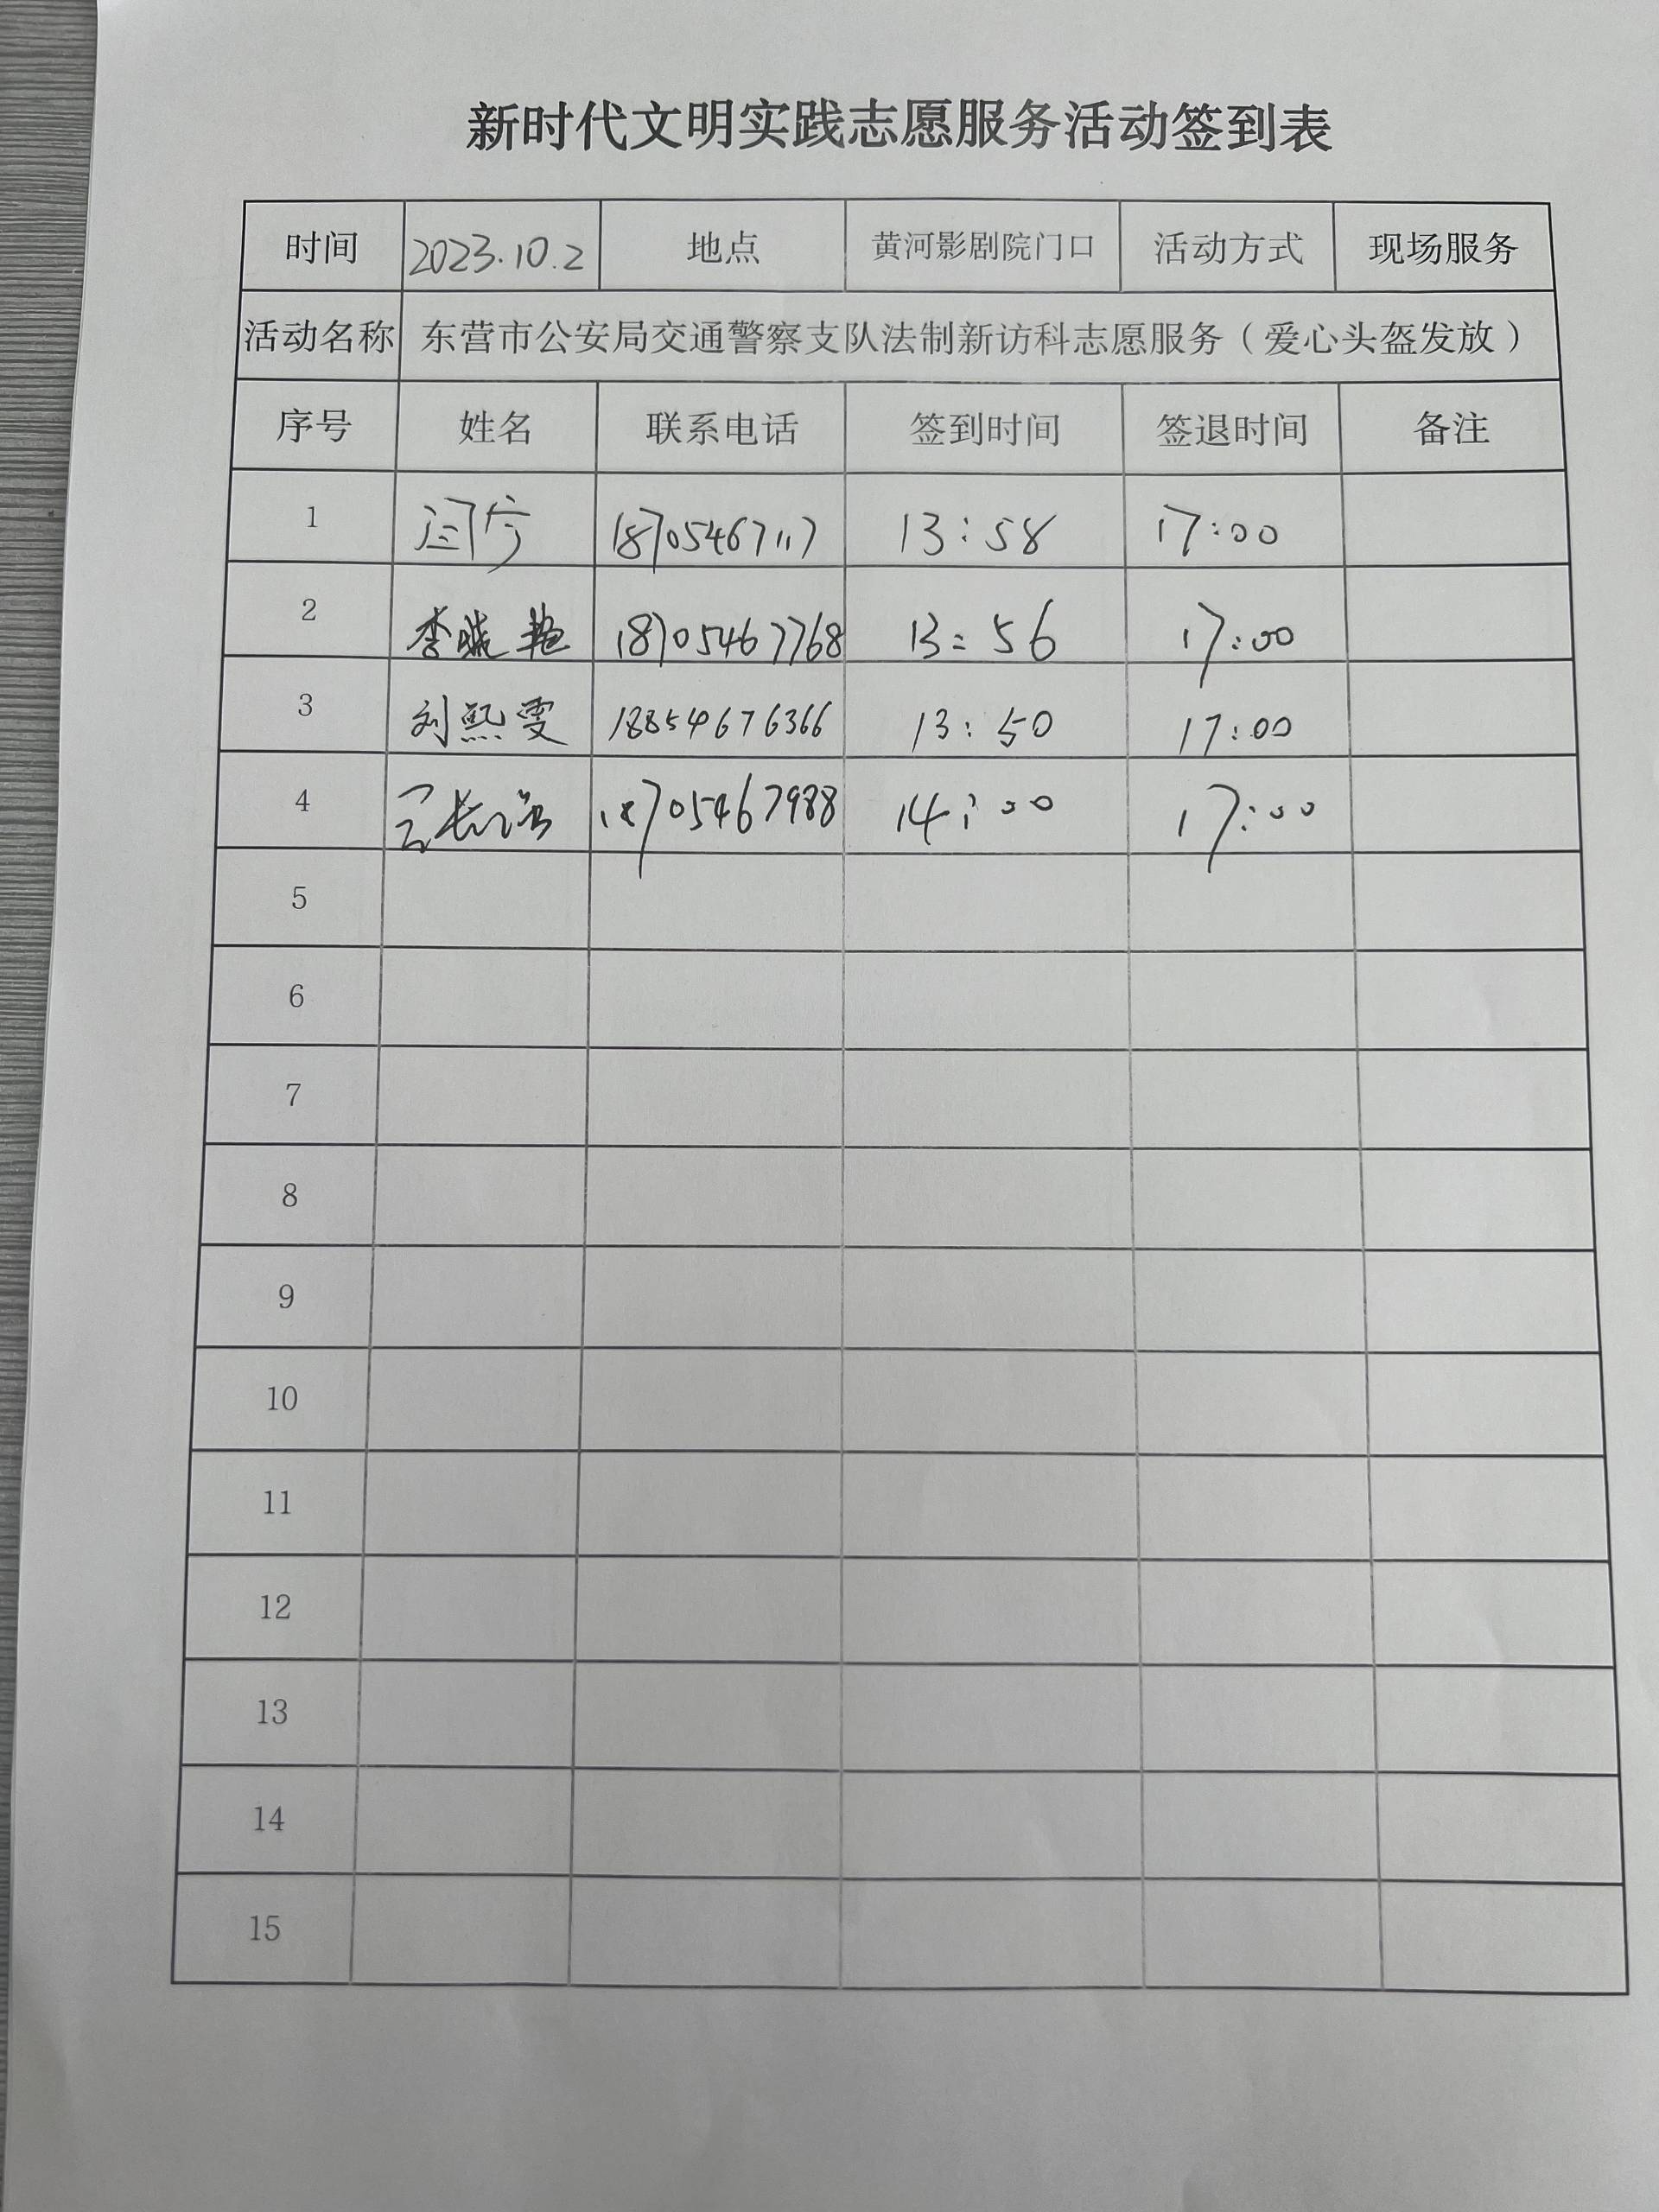 新时代文明实践志愿服务活动签到表
时间 2023.10.2 地点 黄河影剧院门口 活动方式 现场服务
活动名称 东营市公安局交通警察支队法制新访科志愿服务（爱心头盔发放）
序号 姓名 联系电话 签到时间 签退时间 备注
1 18705467117 13:58 17:00
2 李晓艳 18705467768 13:56 17:00
3 刘熙雯 18854676366 13:50 17:00
4 18705467988 14:00 17:00
5
6
7
8
9
10
11
12
13
14
15